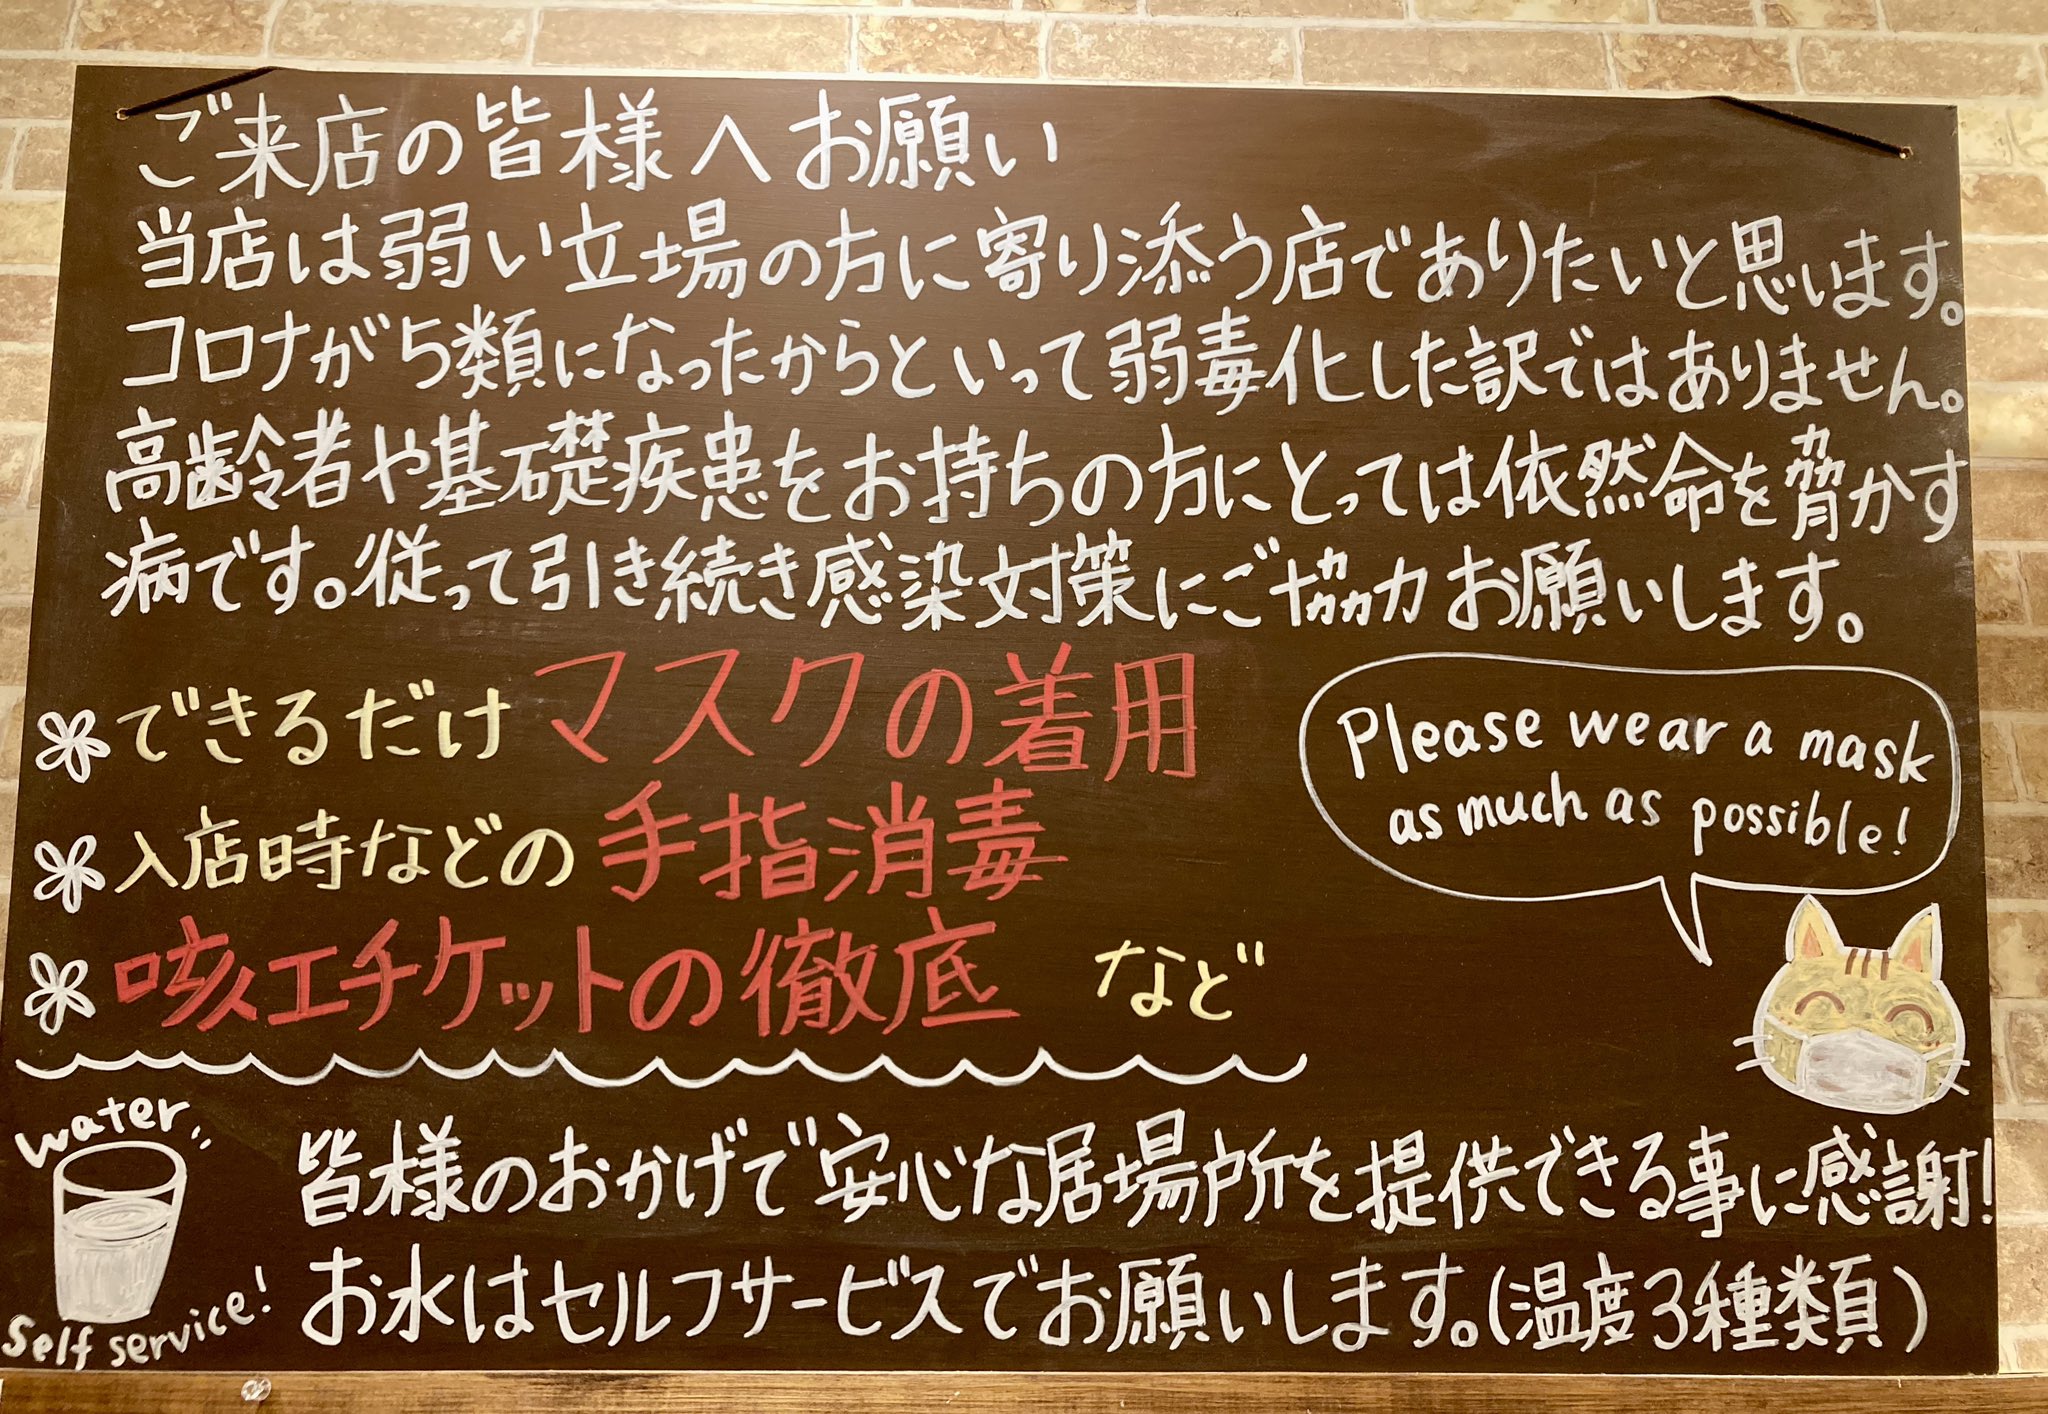 ご来店の皆様へお願い
当店は弱い立場の方に寄り添う店でありたいと思います。
コロナが5類になったからといって弱毒化した訳ではありません。
高齢者や基礎疾患をお持ちの方にとっては依然命を脅かす
病です。従って引き続き感染対策にご協力お願いします。
できるだけマスクの着用
入店時などの手指消毒
咳エチケットの徹底 など
Please wear a mask
as much as possible!
water
Self service!
皆様のおかげで安心な居場所を提供できる事に感謝!
お水はセルフサービスでお願いします。(温度3種類)